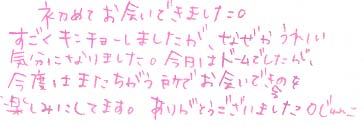 初めてお会いできました。
すごくキンチョーしましたが、なぜかうれしい
気分になりました。今日はドームでしたが、
今度はまたちがう所でお会いできるのを
楽しみにしてます。ありがとうございました。